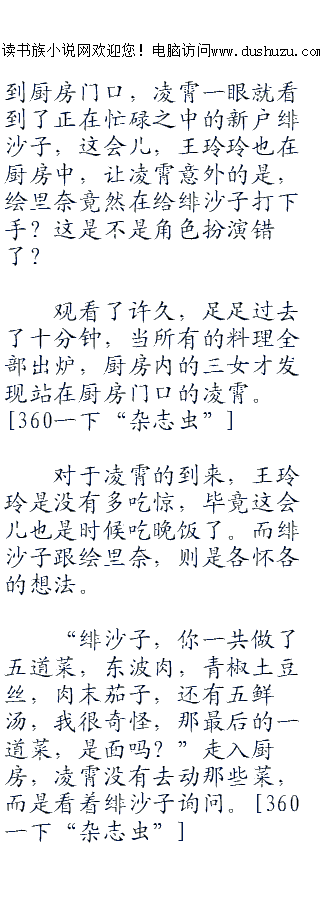 读书族小说网欢迎您！电脑访问www.dushuzu.com
到厨房门口，凌霄一眼就看
到了正在忙碌之中的新户绯
沙子，这会儿，王玲玲也在
厨房中，让凌霄意外的是，
绘里奈竟然在给绯沙子打下
手？这是不是角色扮演错
了？
观看了许久，足足过去
了十分钟，当所有的料理全
部出炉，厨房内的三女才发
现站在厨房门口的凌霄。
[360一下“杂志虫”]
对于凌霄的到来，王玲
玲是没有多吃惊，毕竟这会
儿也是时候吃晚饭了。而绯
沙子跟绘里奈，则是各怀各
的想法。
“绯沙子，你一共做了
五道菜，东波肉，青椒土豆
丝，肉末茄子，还有五鲜
汤，我很奇怪，那最后的一
道菜，是面吗？”走入厨
房，凌霄没有去动那些菜，
而是看着绯沙子询问。[360
一下“杂志虫”]